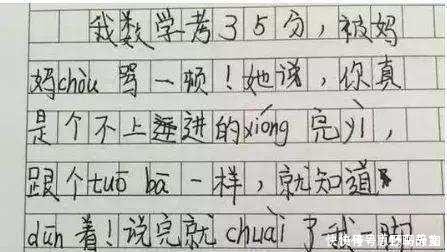 我数学考35分，被妈
妈chòu 骂一顿！她说，你真
是个不上进的xióng 完yì，
跟个tuō bā一样，就知道
dūn着！说完就chuài了我一脚